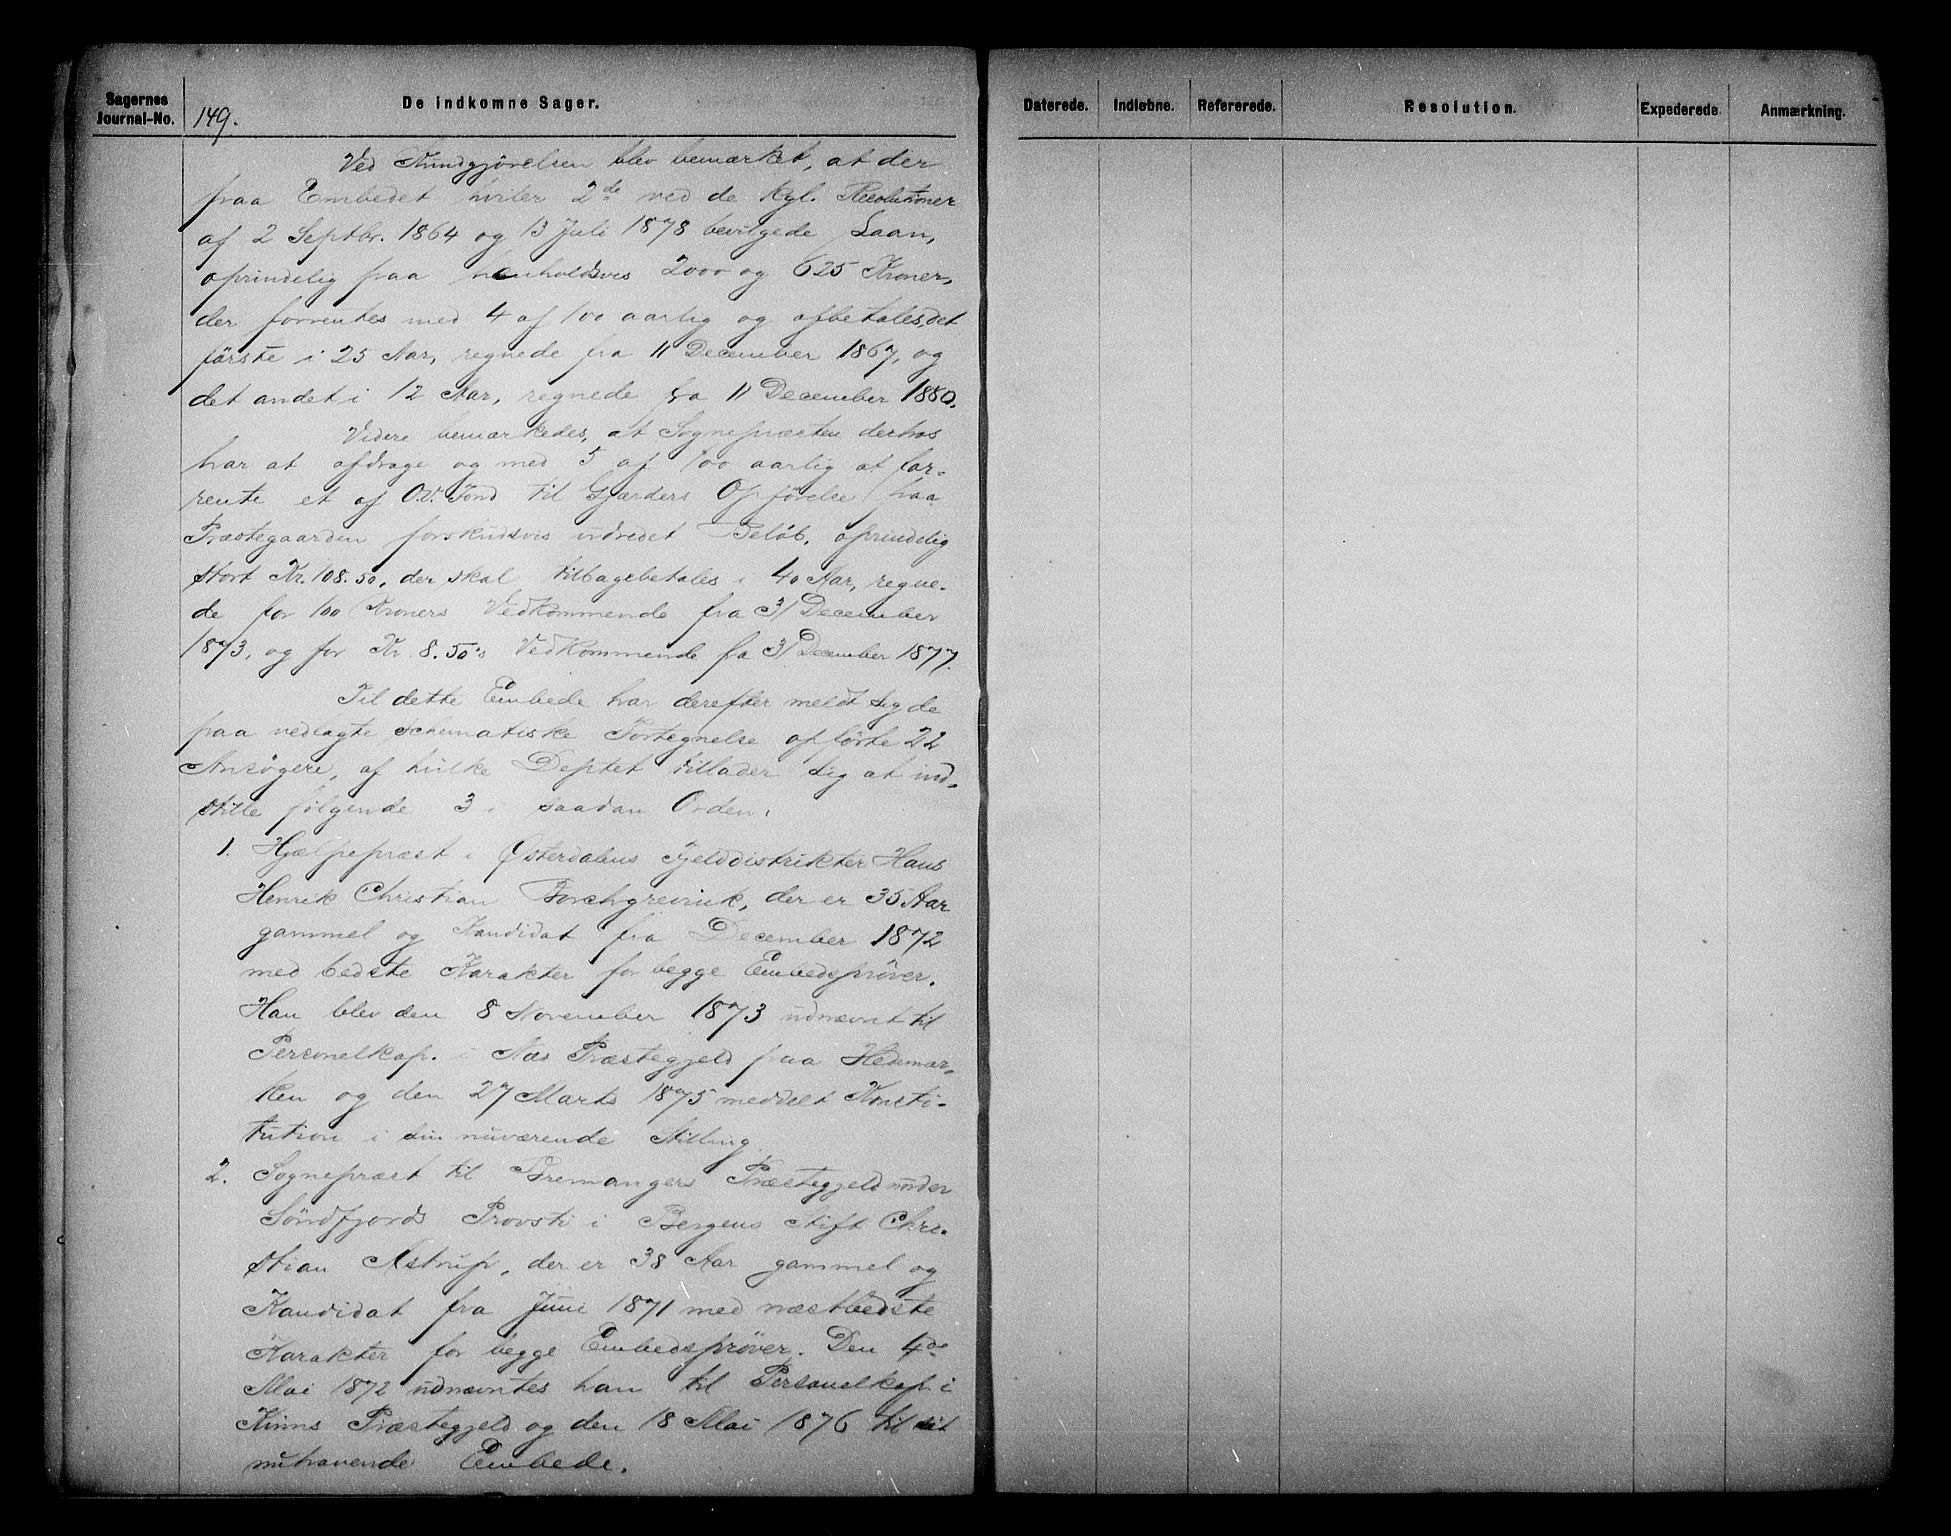 Sagernes
Journal-No.
De indkomne Sager.
149.
Ved Kundgjørelsen blev bemærket, at der
paa Embedet hviler 2de ved de kgl. Resolutioner
af 2 Septbr. 1864 og 13 Juli 1878 bevilgede Laan,
oprindelig paa henholdsvis 2000 og 625 Kroner,
der forrentes med 4 af 100 aarlig og afbetales, det
første i 25 Aar, regnede fra 11 December 1867, og
det andet i 12 Aar, regnede fra 11 December 1880.
Videre bemærkedes, at Sognepræsten derhos
har at afdrage og med 5 af 100 aarlig at for-
rente et af O.V. Fond til Gjærders Opførelse paa
Præstegaarden forskudsvis udredet Beløb, oprindelig
stort Kr. 108.50, der skal tilbagebetales i 40 Aar, regne-
de for 100 Kroners Vedkommende fra 31 December
1873, og for Kr. 8.50's Vedkommende fra 31 December 1877.
Til dette Embede har derefter meldt sig de
paa vedlagte schematiske Fortegnelse opførte 22
Ansøgere, af hvilke Deptet tillader sig at ind-
stille følgende 3 i saadan Orden:
1. Hjælpepræst i Østerdalens Fjelddistrikter Hans
Henrik Christian Borchgrevink, der er 35 Aar
gammel og Kandidat fra December 1872
med bedste Karakter for begge Embedsprøver.
Han blev den 8 November 1873 udnævnt til
Personelkap. i Næs Præstegjeld paa Hedemar-
ken og den 27 Marts 1875 meddelt Konsti-
tution i sin nuværende Stilling.
2. Sognepræst til Bremangers Præstegjeld under
Søndfjords Provsti i Bergens Stift Chri-
stian Astrup, der er 38 Aar gammel og
Kandidat fra Juni 1871 med næstbedste
Karakter for begge Embedsprøver. Den 4de
Mai 1872 udnævntes han til Personelkap. i
Kinns Præstegjeld og den 18 Mai 1876 til sit
nuhavende Embede.
Daterede.
Indløbne.
Refererede.
Resolution.
Expederede.
Anmærkning.